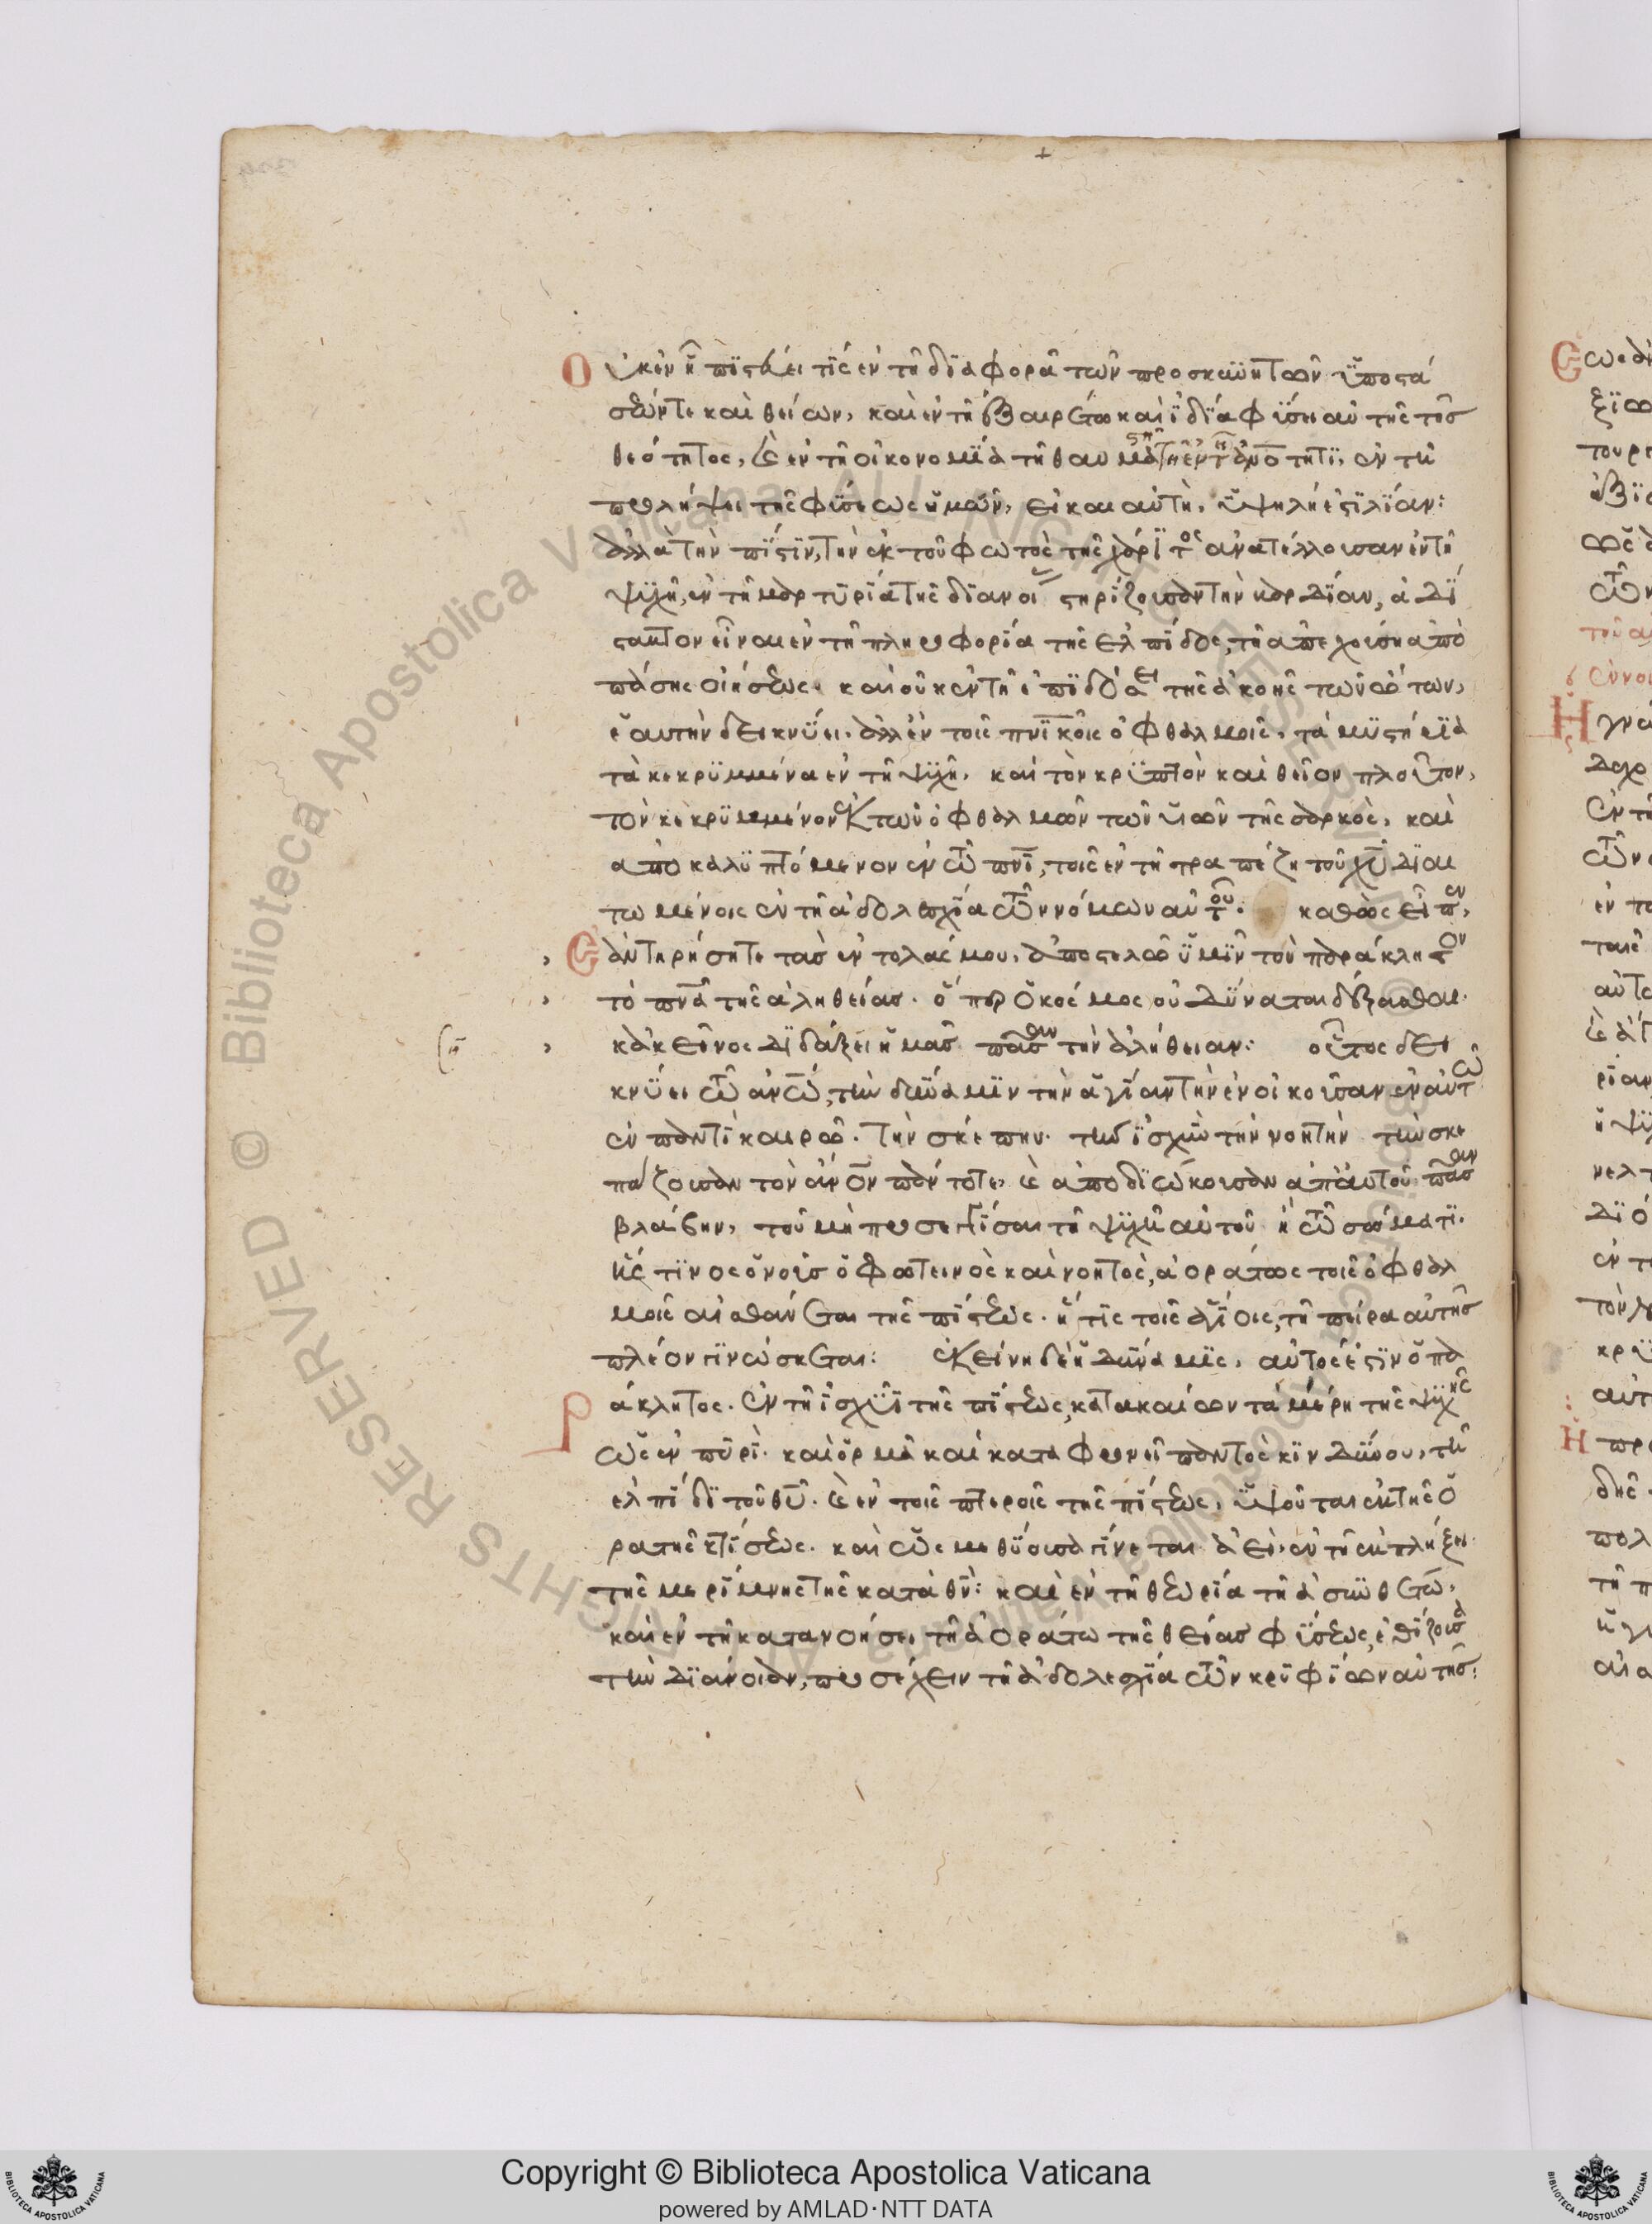 Οὐκ ἐν ᾗ πιστεύει τίς ἐν τῇ διαφορᾷ τῶν προσκυνητῶν ὑποστά
σεών τε καὶ θείων, καὶ ἐν τῇ θαυμαστῇ καὶ ἰδίᾳ φύσει αὐτῆς τῆς
θεότητος, καὶ ἐν τῇ οἰκονομίᾳ τῇ θαυμαστῇ τῇ ἐν τῇ ἀνοτητι, ἐν τῇ
προσλήψει τῆς φύσεως ἡμῶν, εἰ καὶ αὐτὴ, ὑψηλή ἐστι λίαν:
ἀλλὰ τὴν πίστιν, τὴν ἐκ τοῦ φωτὸς τῆς χάριτος ἀνατέλλουσαν ἐν τῇ
ψυχῇ, ἐν τῇ μαρτυρίᾳ τῆς διανοί στηρίζουσαν τὴν καρδίαν, ἀδί
στακτον εἶναι ἐν τῇ πληροφορίᾳ τῆς ἐλπίδος, τῇ ἀπεχούσῃ ἀπὸ
πάσης οἰήσεως. καὶ οὐκ ἐν τῇ ἐπιδόσει τῆς ἀκοῆς τῶν ὤτων,
ἑαυτὴν δεικνύει. ἀλλ' ἐν τοῖς πνικοῖς ὀφθαλμοῖς, τὰ μυστήρια
τὰ κεκρυμμένα ἐν τῇ ψυχῇ, καὶ τὸν κρυπτὸν καὶ θεῖον πλοῦτον,
τὸν κεκρυμμένον ἐκ τῶν ὀφθαλμῶν τῶν υἱῶν τῆς σαρκὸς, καὶ
ἀποκαλυπτόμενον ἐν τῷ πνι, τοῖς ἐν τῇ τραπέζῃ τοῦ χυ διαι
τωμένοις ἐν τῇ ἀδολεσχίᾳ τῶν νόμων αὐτοῦ. καθὼς εἶπεν,
Ἐὰν τηρήσητε τὰς ἐντολάς μου, ἀποστελῶ ὑμῖν τὸν παράκλητον
τὸ πνα τῆς ἀληθείας. ὅπερ ὁ κόσμος οὐ δύναται δέξασθαι.
κἀκεῖνος διδάξει ἡμᾶς πᾶσαν τὴν ἀλήθειαν: οὗτος δει
κνύει τῷ ανω, τὴν δύναμιν τὴν ἁγίαν τὴν ἐνοικοῦσαν ἐν αὐτῷ
ἐν παντὶ καιρῷ. τὴν σκέπην. τὴν ἰσχὺν τὴν νοητὴν τὴν σκε
πάζουσαν τὸν ανον πάντοτε, καὶ ἀποδιώκουσαν ἀπ' αὐτοῦ πᾶσαν
βλάβην, τοῦ μὴ προσεγγίσαι τῇ ψυχῇ αὐτοῦ ἢ τῷ σώματι.
ἧς τινος ὁ νοῦς ὁ φωτεινὸς καὶ νοητὸς, ἀοράτως τοῖς ὀφθαλ
μοῖς αἰσθάνεται τῆς πίστεως. ἥτις τοῖς ἁγίοις, τῇ πείρᾳ αὐτῆς
πλέον γινώσκεται: Ἐκείνη δὲ ἡ δύναμις, αὐτός ἐστιν ὁ πα
ράκλητος. ἐν τῇ ἰσχύϊ τῆς πίστεως, κατακαίων τὰ μέρη τῆς ψυχῆς
ὡς ἐν πυρί. καὶ ὁρμᾷ καὶ καταφρονεῖ παντὸς κινδύνου, τῇ
ἐλπίδι τοῦ θυ. καὶ ἐν τοῖς πτεροῖς τῆς πίστεως, ὑψοῦται ἐκ τῆς ὁ
ρατῆς κτίσεως. καὶ ὡς μεθύουσα γίνεται ἀεὶ, ἐν τῇ ἐκπλήξει
τῆς μερίμνης τῆς κατὰ θν: καὶ ἐν τῇ θεωρίᾳ τῇ ἀσυνθέτῳ,
καὶ ἐν τῇ κατανοήσει τῇ ἀοράτῳ τῆς θείας φύσεως, ἐθίζουσα
τὴν διάνοιαν, προσέχειν τῇ ἀδολεσχίᾳ τῶν κρυφίων αὐτῆς:
Copyright © Biblioteca Apostolica Vaticana
powered by AMLAD·NTT DATA